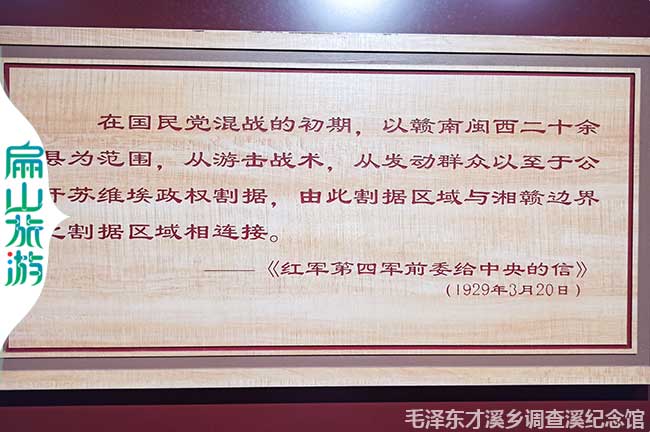 在国民党混战的初期，以赣南闽西二十余
县为范围，从游击战术，从发动群众以至于公
开苏维埃政权割据，由此割据区域与湘赣边界
之割据区域相连接。
——《红军第四军前委给中央的信》
（1929年3月20日）
扁山旅游
毛泽东才溪乡调查溪纪念馆